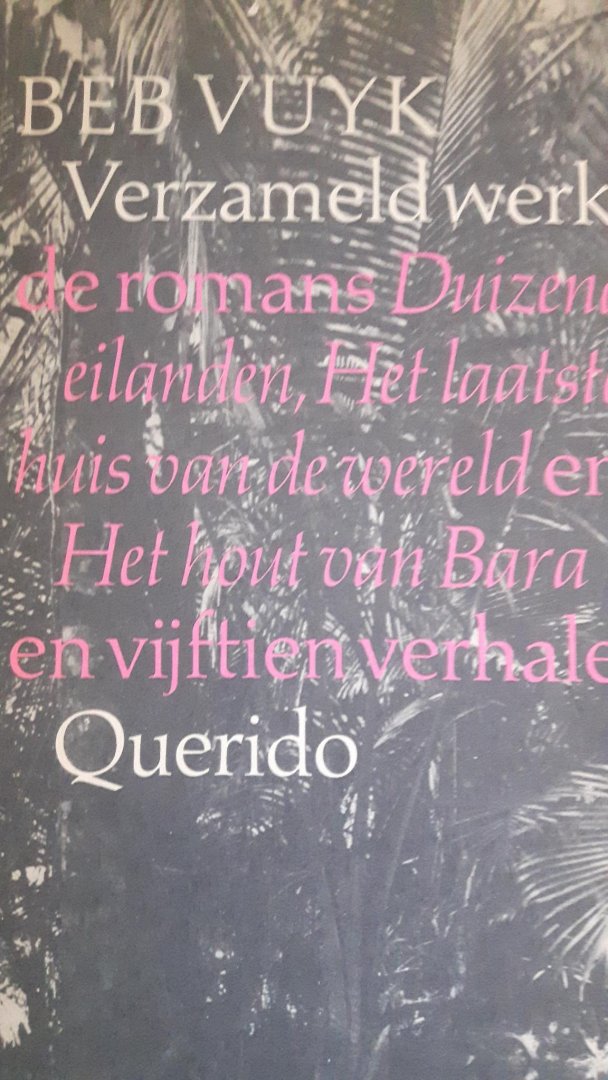 BEB VUYK
Verzameld werk
de romans Duizend
eilanden, Het laatste
huis van de wereld en
Het hout van Bara
en vijftien verhale
Querido